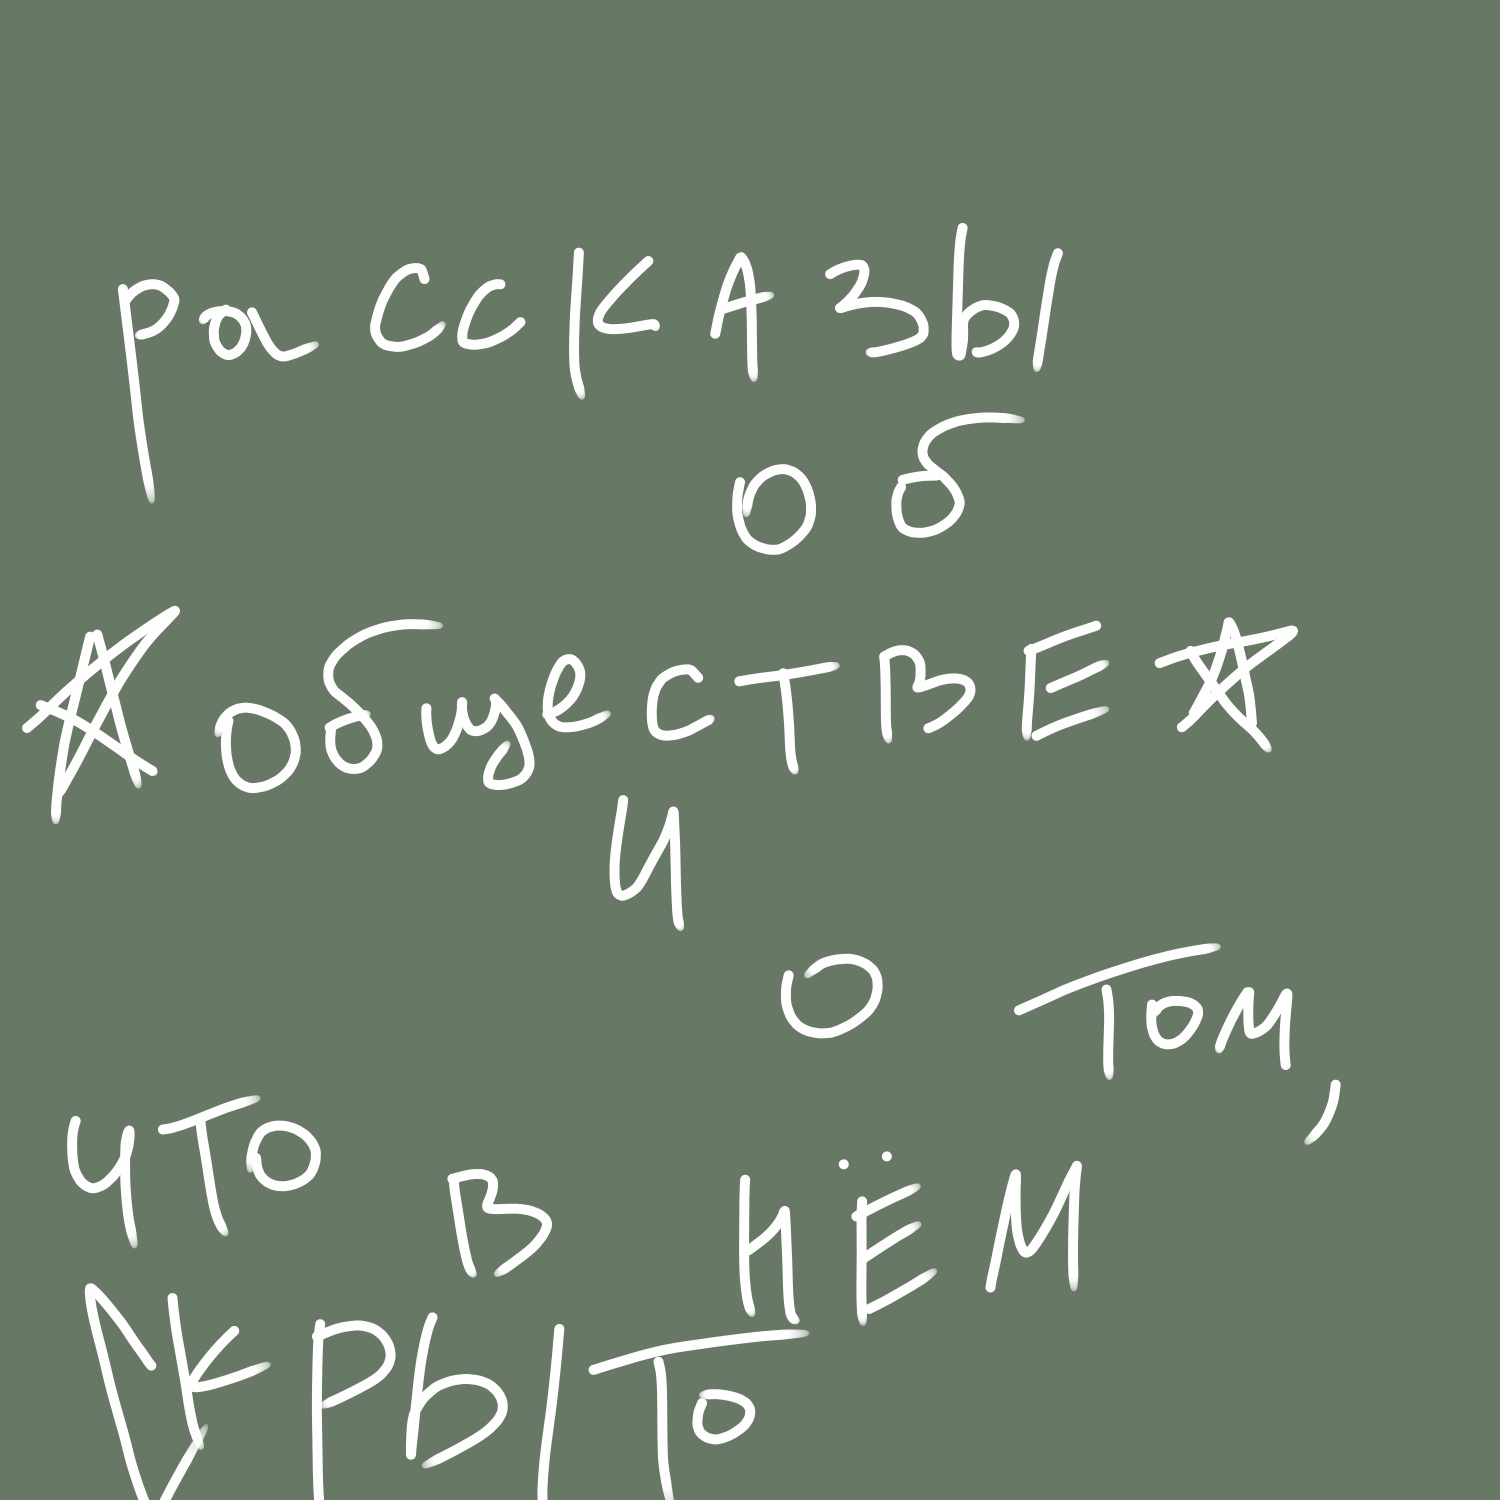 расскАЗЫ
об
☆ обществЕ ☆
и
о Том,
что
в НЁМ
СКРЫТо